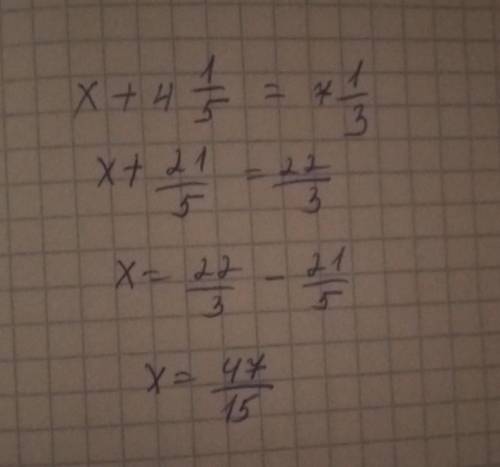 x + 4 1/5 = 7 1/3
x + 21/5 = 22/3
x = 22/3 - 21/5
x = 47/15